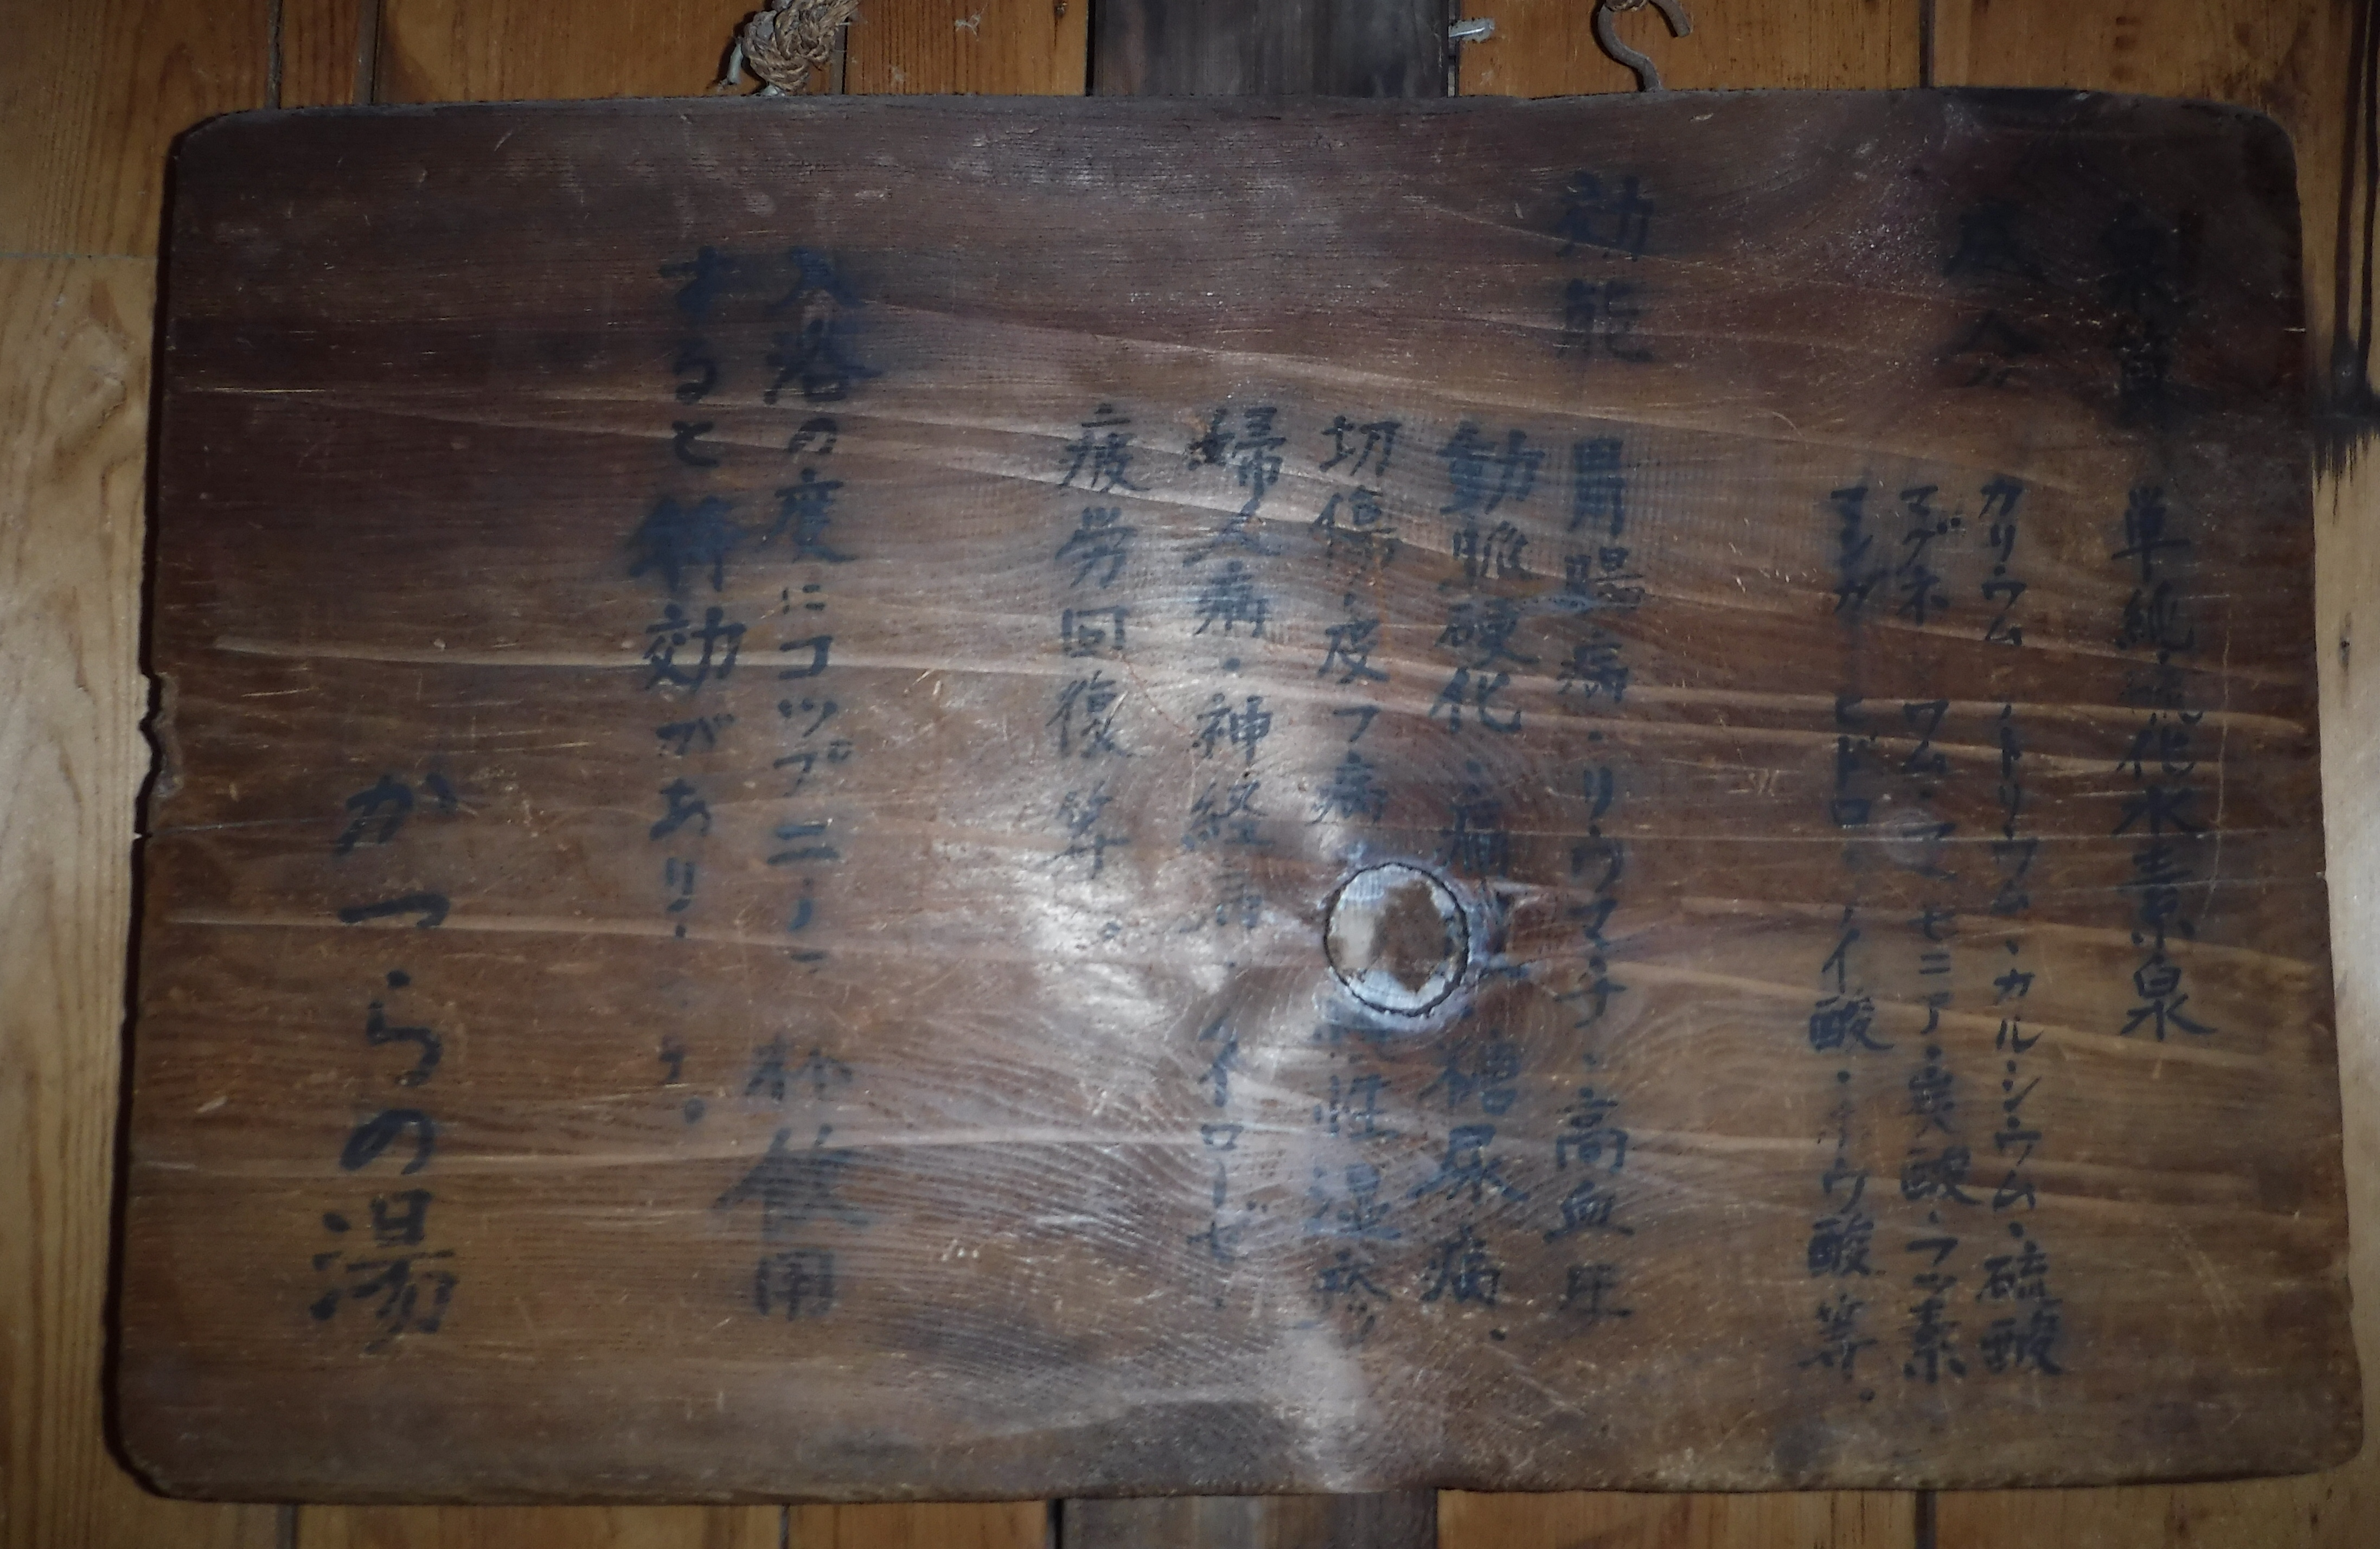 単純硫化水素泉
成分
カリウム・ナトリウム・カルシウム・硫酸
マグネシウム・アンモニア・炭酸・フッ素
マンガン・ヒドロ・ケイ酸・ホウ酸等。
効能
胃腸病・リウマチ・高血圧
動脈硬化・糖尿病・
切傷・皮フ病・性湿疹
婦人病・神経痛・ノイローゼ・
疲労回復等。
入浴の度にコップ二 飲用
すると特効があります。
かつらの湯